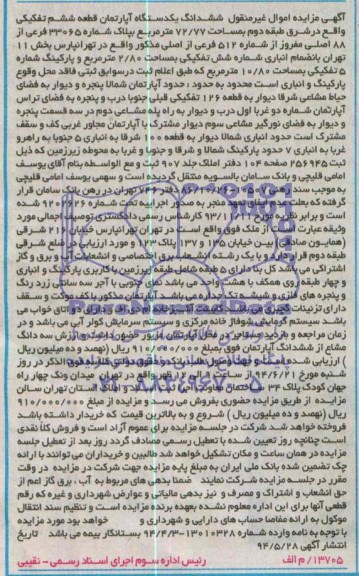 آگهی مزایده اموال غیرمنقول ششدانگ یکدستگاه آپارتمان قطعه ششم تفکیکی
واقع درشرق طبقه دوم بمساحت ۷۲/۷۷ مترمربع پلاک شماره ۳۳۰۶۵ فرعی از
۸۸ اصلی مفروز از شماره ۵۱۲ فرعی از اصلی مذکور واقع در تهرانپارس بخش ۱۱
تهران بانضمام انباری شماره شش تفکیکی بمساحت ۲/۸۰ مترمربع و پارکینگ شماره
۵ تفکیکی بمساحت ۱۰/۸۰ مترمربع که طبق اعلام ثبت درسوابق ثبتی فاقد محل وقوع
پارکینگ و انباری است محدود به حدود : حدود آپارتمان شمالا پنجره و دیوار به فضای
حیاط مشاعی شرقا دیوار به قطعه ۱۲۶ تفکیکی قبلی جنوبا درب و پنجره به فضای تراس
آپارتمان شماره دو غربا اول درب و دیوار به راه پله مشاعی دوم در سه قسمت پنجره
و دیوار به فضای نورگیر مشاعی سوم دیوار مشترک با آپارتمان مجاور غربی کف و سقف
مشترک است حدود انباری شمالا دیوار به قطعه ۱۰ شرقا به انباری ۵ جنوبا به راهرو
غربا به انباری ۷ حدود پارکینگ شمالا و شرقا و جنوبا و غربا به محوطه زیرزمین که ذیل
ثبت ۲۵۶۹۴۵ صفحه ۱۰۴ دفتر املاک جلد ۹۰۷ ثبت و مع الواسطه بنام آقای یوسف
امامی قلیچی و بانک سامان بالسویه منتقل گردیده است و سهمی یوسف امامی قلیچی
به موجب سند دفتر تهران در رهن بانک سامان قرار
گرفته که بعلت عدم منجر به صدور اجرائیه شماره شده
است و برابر نظریه مورخ ۹۳/۱۰/۱ کارشناس رسمی دادگستری توصیف اجمالی مورد
وثیقه عبارت است از ملک فوق واقع است در تهران تهرانپارس خیابان ۲۱۴ شرقی
(همایون صادقی) بین خیابان ۱۳۵ و ۱۳۷ پلاک و مورد ارزیابی در ضلع شرقی
طبقه دوم قرار دارد و با یک رشته اختصاصی و انشعابات آب و برق و گاز
اشتراکی می باشد کل بنا دارای ۵ طبقه شامل طبقه زیرزمین با کاربری پارکینگ و انباری
و چهار طبقه روی همکف با هشت واحد می باشد نمای جنوبی با آجر سه سانتی زرد رنگ
و پنجره های فلزی و شیشه تک جداره می باشد آپارتمان مذکور با کف موکت و سقف
دارای تزئینات دارای دو اتاق خواب می
باشد سیستم گرمایش شوفاژ خانه مرکزی و سیستم سرمایش کولر آبی می باشد و در
زمان مراجعه و بازدید سه دانگ
مشاع از ششدانگ آپارتمان فوق بمبلغ ۹۱۰/۰۰۰/۰۰۰ ریال (نهصد و ده میلیون ریال
) ارزیابی شده الذکر در روز
شنبه مورخ ۹۴/۶/۲۱ از ساعت ۹ الی ۱۲ ظهر واقع در تهران میدان ونک چهار راه
جهان کودک پلاک ۳۴ ساختمان استان تهران سالن
مزایده از طریق مزایده حضوری بفروش می رسد و مزایده از مبلغ ۹۱۰/۰۰۰/۰۰۰
ریال (نهصد و ده میلیون ریال ) شروع و به بالاترین قیمت که خریدار داشته باشد
فروخته خواهد شد شرکت در جلسه مزایده برای عموم آزاد است و فروش کلا نقدی
است چنانچه روز تعیین شده با تعطیل رسمی مصادف گردد روز بعد از تعطیل جلسه
مزایده در همان ساعت و مکان تشکیل خواهد شد طالبین و خریداران می توانند با ارائه
چک تضمین شده بانک ملی ایران به مبلغ پایه مزایده جهت شرکت در مزایده در وقت
مقرر در جلسه مزایده شرکت نمایند ضمنا بدهی های مربوط به آب ، برق گاز اعم از
حق انشعاب و اشتراک و مصرف و نیز بدهی مالیاتی و عوارض شهرداری و غیره که رقم
قطعی آنها برای این اداره معلوم نشده بعهده برنده مزایده است و تنظیم سند انتقال
موکول به ارائه مفاصا حساب های دارایی و شهرداری و خواهد بود مورد مزایده
با توجه به وارده شماره ۱۳۰۱۰۳۲۸ - ۹۴/۴/۳ بستانکار بیمه می باشد تاریخ
انتشار آگهی ۹۴/۵/۲۸
۱۳۷۰۵/ م الف رئیس اداره سوم اجرای اسناد رسمی - نقیبی